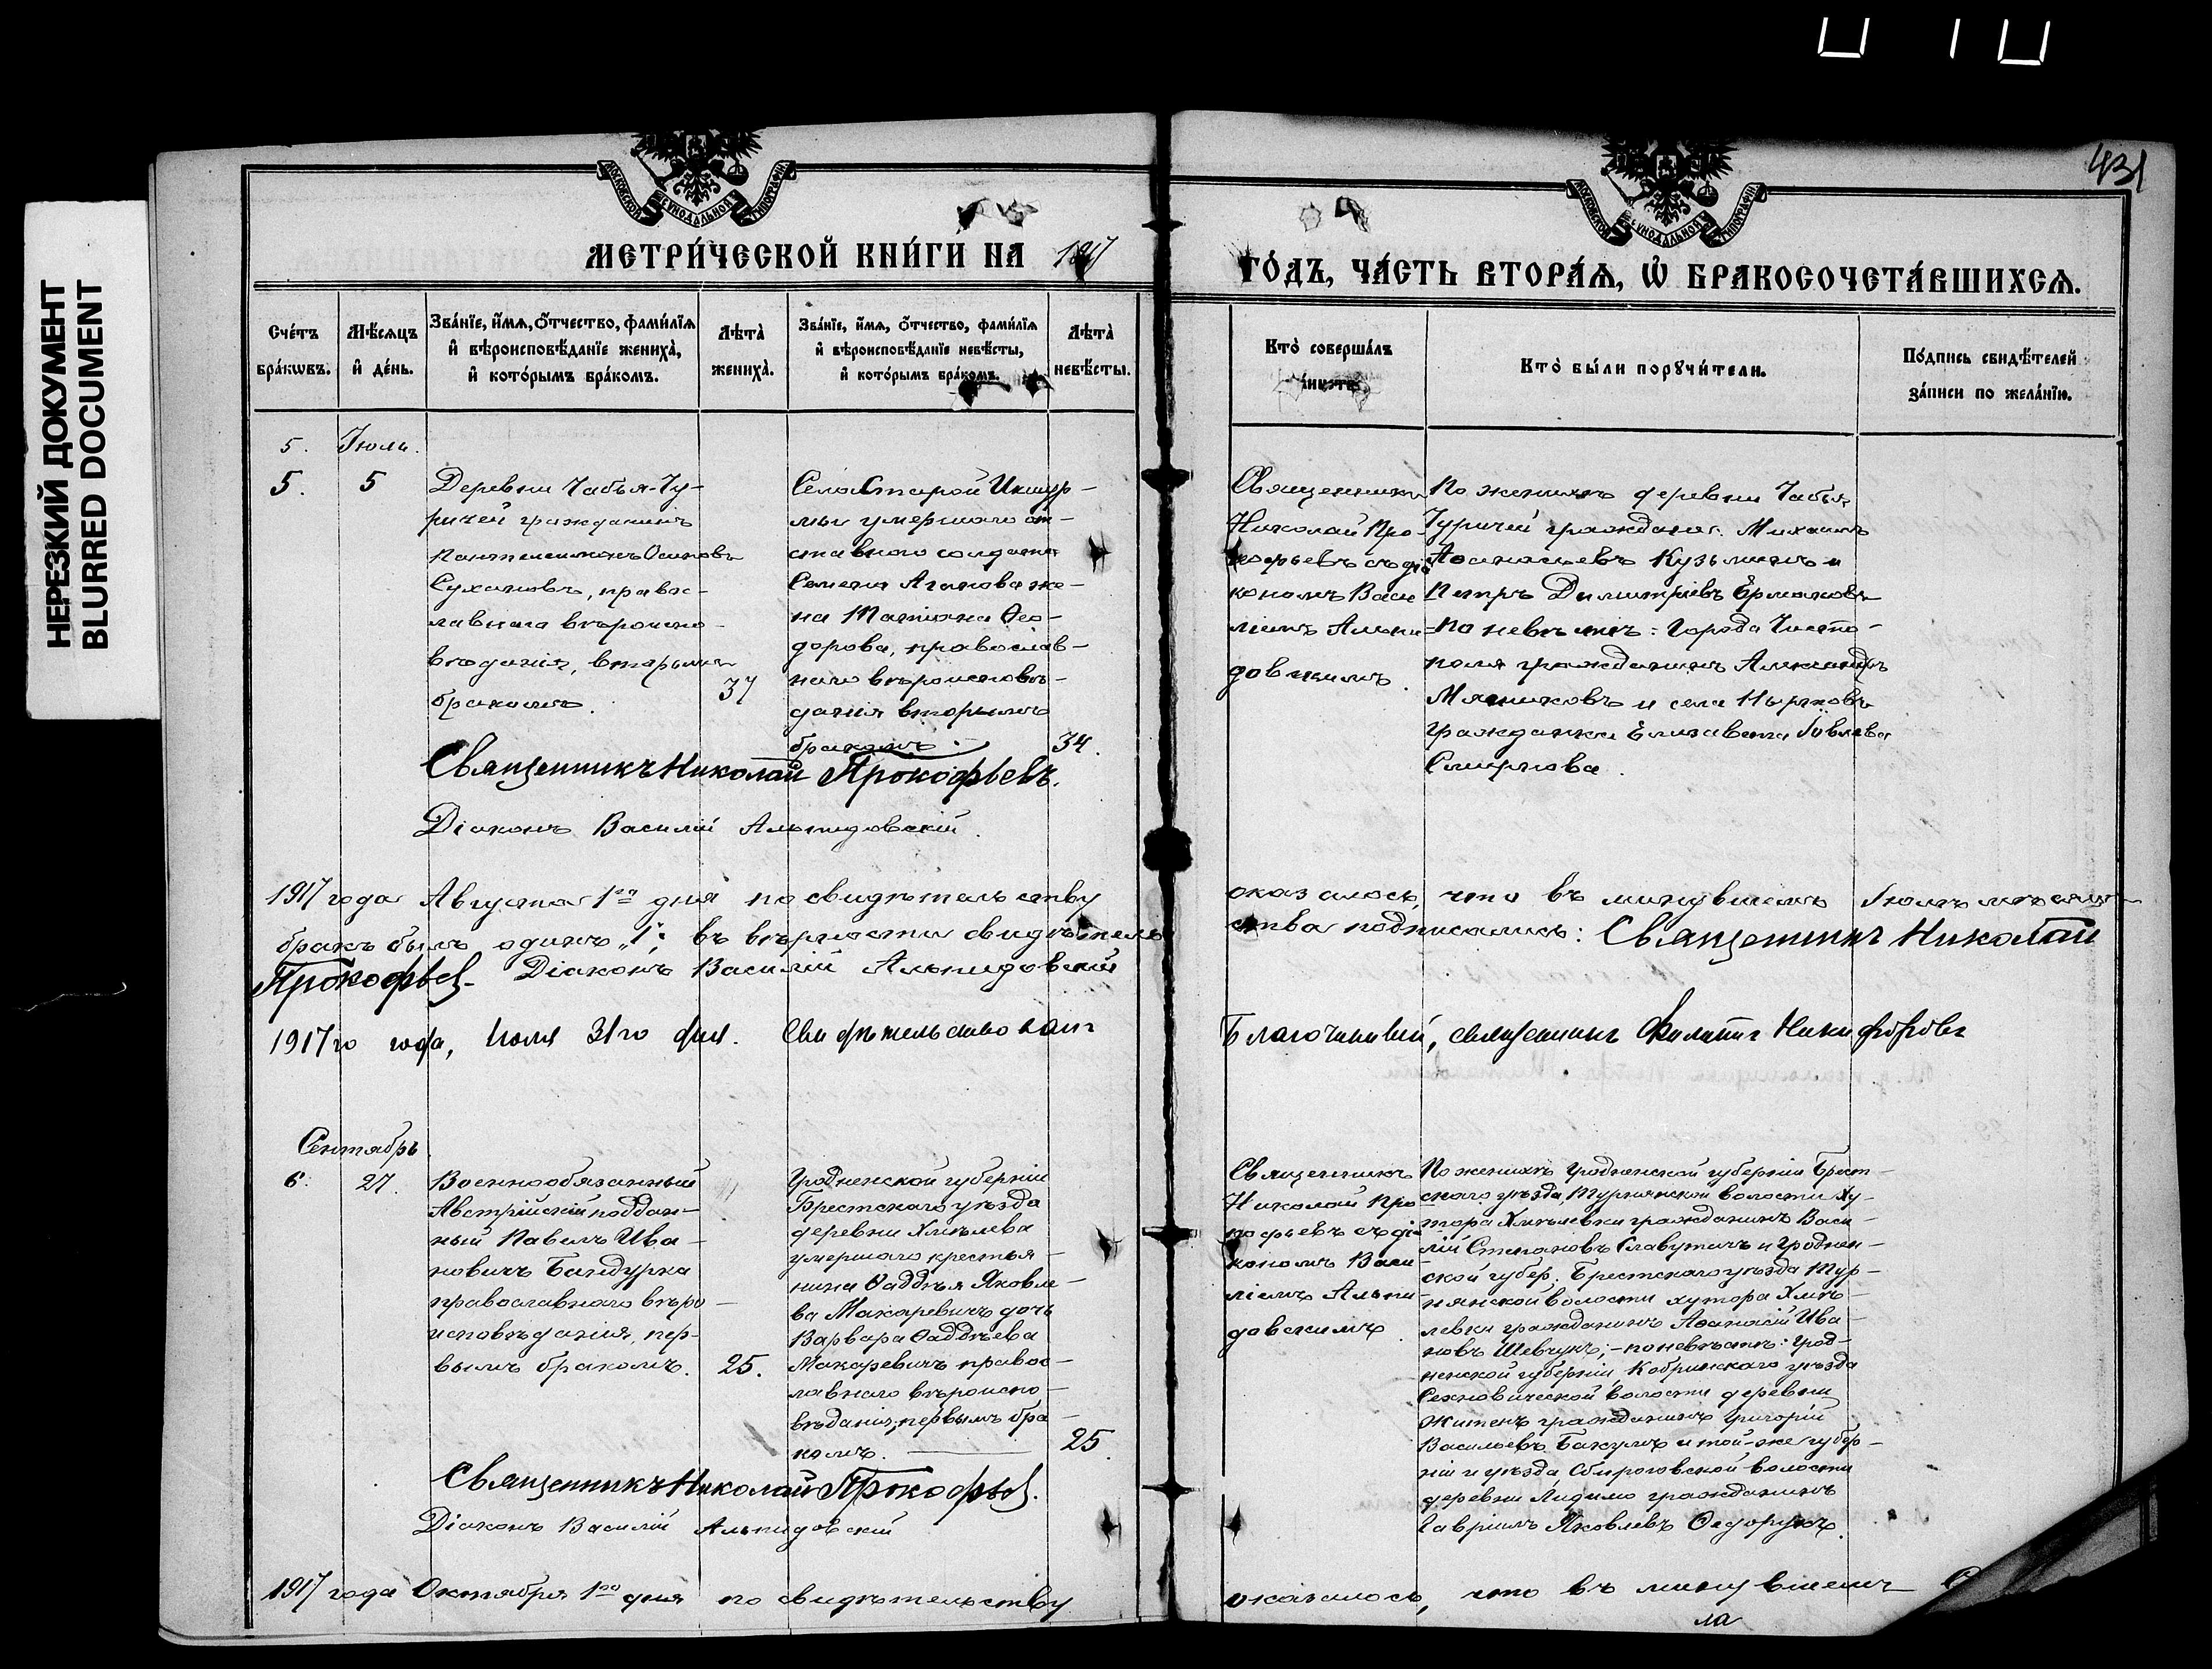 НЕРЕЗКИЙ ДОКУМЕНТ
BLURRED DOCUMENT
431
МОСКОВСКОЙ СѴНОДАЛЬНОЙ ТИПОГРАФІИ
МОСКОВСКОЙ СѴНОДАЛЬНОЙ ТИПОГРАФІИ
МЕТРИ́ЧЕСКОЙ КНИ́ГИ НА 1917
ГО́ДЪ, ЧА́СТЬ ВТОРА́Ѧ, Ѡ҆ БРАКОСОЧЕТА́ВШИХСѦ.
Сче́тъ бра́кѡвъ.
Мѣ́сяцъ и҆ де́нь.
Зва́нїе, и҆́мѧ, ѻ҆́тчество, фами́лїѧ
и҆ вѣроисповѣ́данїе жениха̀,
и҆ кото́рымъ бра́комъ.
Лѣта̀ жениха̀.
Зва́нїе, и҆́мѧ, ѻ҆́тчество, фами́лїѧ
и҆ вѣроисповѣ́данїе невѣ́сты,
и҆ кото́рымъ бра́комъ.
Лѣта̀ невѣ́сты.
Кто̀ соверша́лъ
Кто̀ бы́ли порꙋчи́тели.
По́дпись свидѣ́телей
за́писи по жела́нїю.
5. Іюль.
5. 5
Деревни Чабья-Чу-
ричей гражданинъ
Пантелеимонъ Осиповъ
Сухановъ, правос-
лавнаго вѣроиспо-
вѣданія, вторымъ
бракомъ.
37
Села Старой Икшур-
мы умершаго от-
ставного солдата
Семена Агапова же-
на Татіана Ѳео-
дорова, православ-
наго вѣроисповѣ-
данія вторымъ
бракомъ.
34.
Священникъ
Николай Про-
кофьевъ съ діа
кономъ Васи
ліемъ Альпи-
довскимъ.
По женихѣ деревни Чабья
Чуричей граждане: Михаилъ
Аѳанасьевъ Кузьминъ и
Петръ Димитріевъ Ермаковъ
По невѣстѣ: Города Чисто-
поля гражданинъ Александръ
Мясниковъ и села
гражданка Елизавета
Смирнова.
Священникъ Николай Прокофьевъ.
Діаконъ Василій Альпидовскій.
1917 года Августа 1го дня по свидѣтельству
оказалось, что въ минувшемъ Іюлѣ мѣсяцѣ
бракъ былъ одинъ „1“, въ вѣрности свидѣтель
ства подписались: Священникъ Николай
Прокофьевъ. Діаконъ Василій Альпидовскій
1917го года, Іюля 31го дня. Свидѣтельствовалъ
Благочинный, священникъ Филиппъ Никифоровъ
Сентябрь
6. 27.
Военнообязанный
Австрійскій поддан-
ный Павелъ Ива-
новичъ Бандурка
православнаго вѣро-
исповѣданія, пер-
вымъ бракомъ.
25.
Гродненской губерніи
Брестскаго уѣзда
деревни Хмѣлева
умершаго крестья-
нина Ѳаддѣя Яковле-
ва Макаревичъ дочь
Варвара Ѳаддѣева
Макаревичъ правос-
лавнаго вѣроиспо-
вѣданія, первымъ бра-
комъ.
25.
Священникъ
Николай Про
кофьевъ съ ді
кономъ Васи-
ліемъ Альпи-
довскимъ.
По женихѣ Гродненской губерніи Брест-
скаго уѣзда, Турнянской волости ху-
тора Хмѣлевки гражданинъ Васи-
лій Степановъ Славутичъ и Гроднен-
ской губер. Брестскаго уѣзда Тур-
нянской волости хутора Хмѣ-
левки гражданинъ Аѳанасій Ива-
новъ Шевчукъ; - по невѣстѣ: Грод-
ненской губерніи, Кобринскаго уѣзда
волости деревни
Житень гражданинъ Григорій
Васильевъ Бакулъ и той-же губер-
ніи и уѣзда волости
деревни гражданинъ
Гавріилъ Яковлевъ Ѳедорукъ.
Священникъ Николай Прокофьевъ.
Діаконъ Василій Альпидовскій
1917 года Октября 1го дня по свидѣтельству
оказалось, что въ минувшемъ